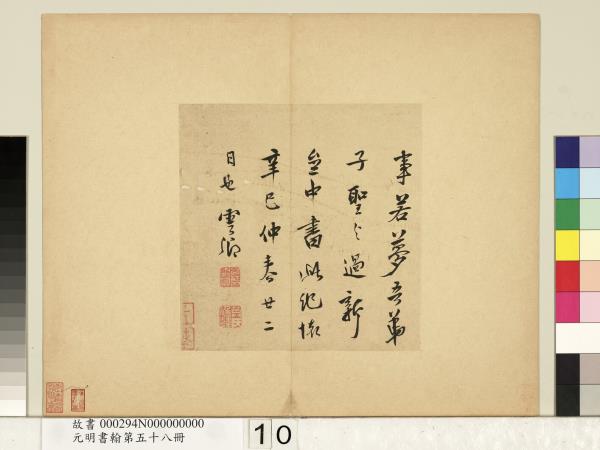 事若夢吾弟
子聖之過新
中書此紀懷
辛巳仲春廿二
日也雲卿
故書 000294N000000000
元明書翰第五十八冊
10